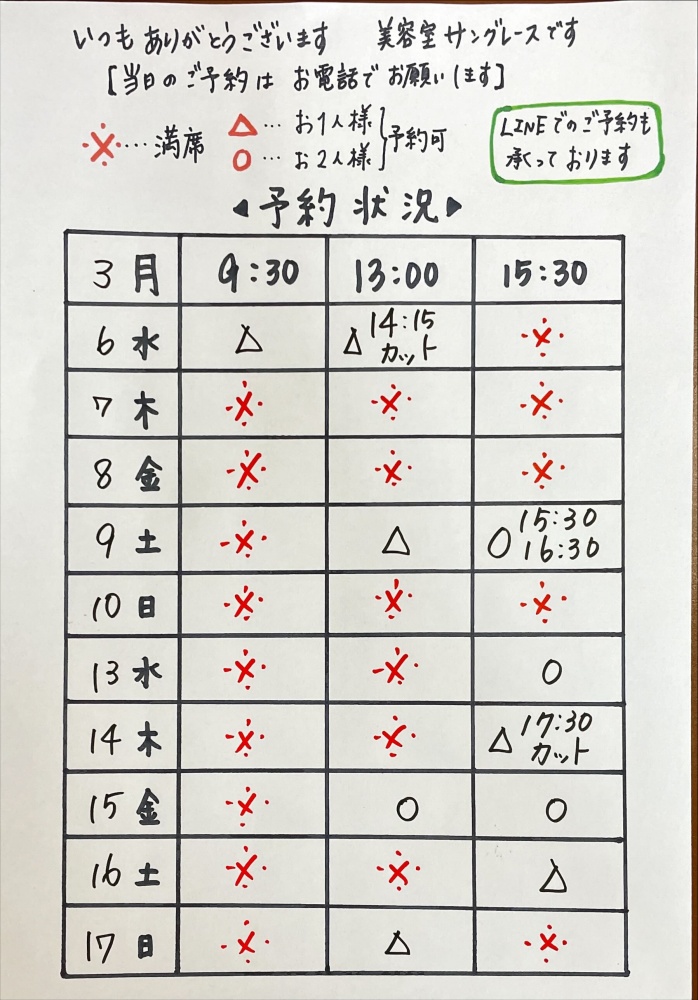 いつもありがとうございます 美容室サングレースです
[当日のご予約は お電話でお願いします]
※…満席
△…お1人様
○…お2人様
予約可
LINEでのご予約も
承っております
◀予約状況▶
3月 9:30 13:00 15:30
6 水 △ △14:15 カット ※
7 木 ※ ※ ※
8 金 ※ ※ ※
9 土 ※ △ ○15:30 16:30
10 日 ※ ※ ※
13 水 ※ ※ ○
14 木 ※ ※ △17:30 カット
15 金 ※ ○ ○
16 土 ※ ※ △
17 日 ※ △ ※